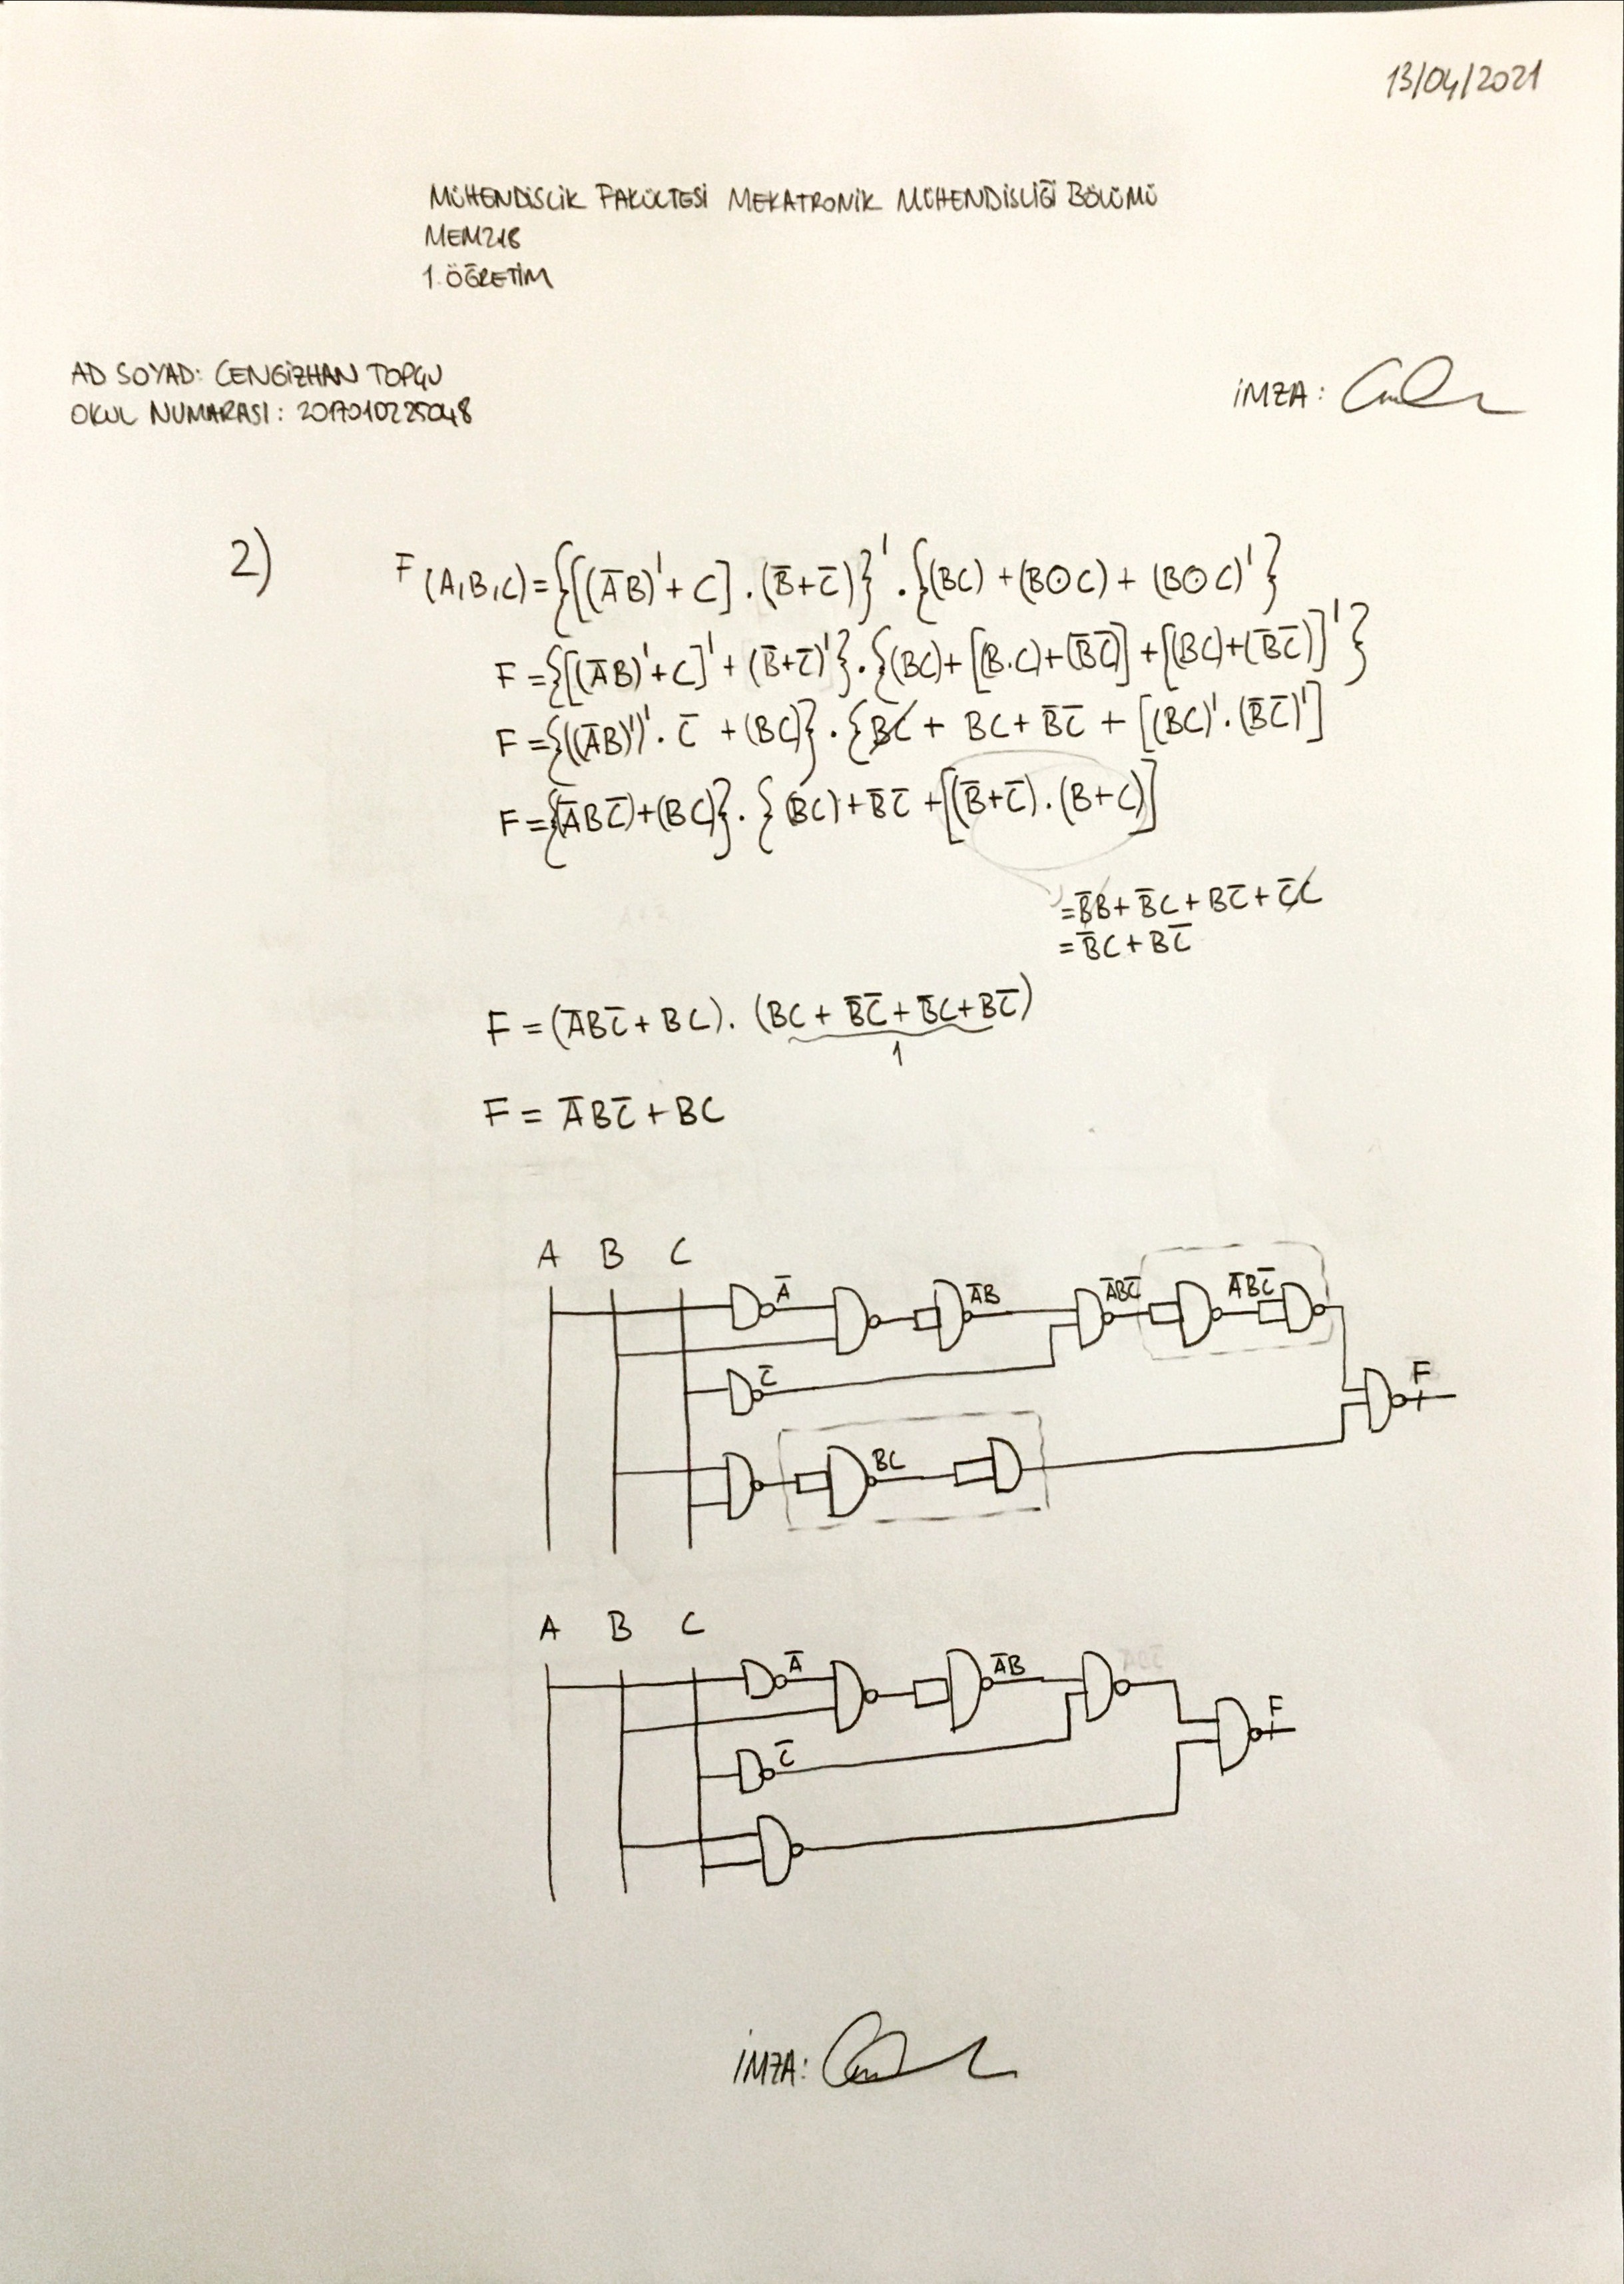 13/04/2021
MÜHENDİSLİK FAKÜLTESİ MEKATRONİK MÜHENDİSLİĞİ BÖLÜMÜ
MEM218
1. ÖĞRETİM
AD SOYAD: CENGİZHAN TOPÇU
OKUL NUMARASI: 2017010225048
İMZA:
2) F(A,B,C) = {[(A̅B)' + C] . (B̅+C̅)}' . {(BC) + (B⊙C) + (B⊙C)'}
F = {[(A̅B)'+C]' + (B̅+C̅)'} . {(BC) + [(B.C)+(B̅C̅)] + [(BC)+(B̅C̅)]'}
F = {((A̅B)')' . C̅ + (BC)} . {BC + BC + B̅C̅ + [(BC)' . (B̅C̅)']
F = {(A̅BC̅)+(BC)} . {(BC) + B̅C̅ + [(B̅+C̅) . (B+C)]
= B̅B + B̅C + BC̅ + C̅C
= B̅C + BC̅
F = (A̅BC̅ + BC) . (BC + B̅C̅ + B̅C + BC̅)
1
F = A̅BC̅ + BC
A B C
A̅ A̅B A̅BC̅ A̅BC̅
C̅
F
BC
A B C
A̅ A̅B
C̅
F
İMZA: